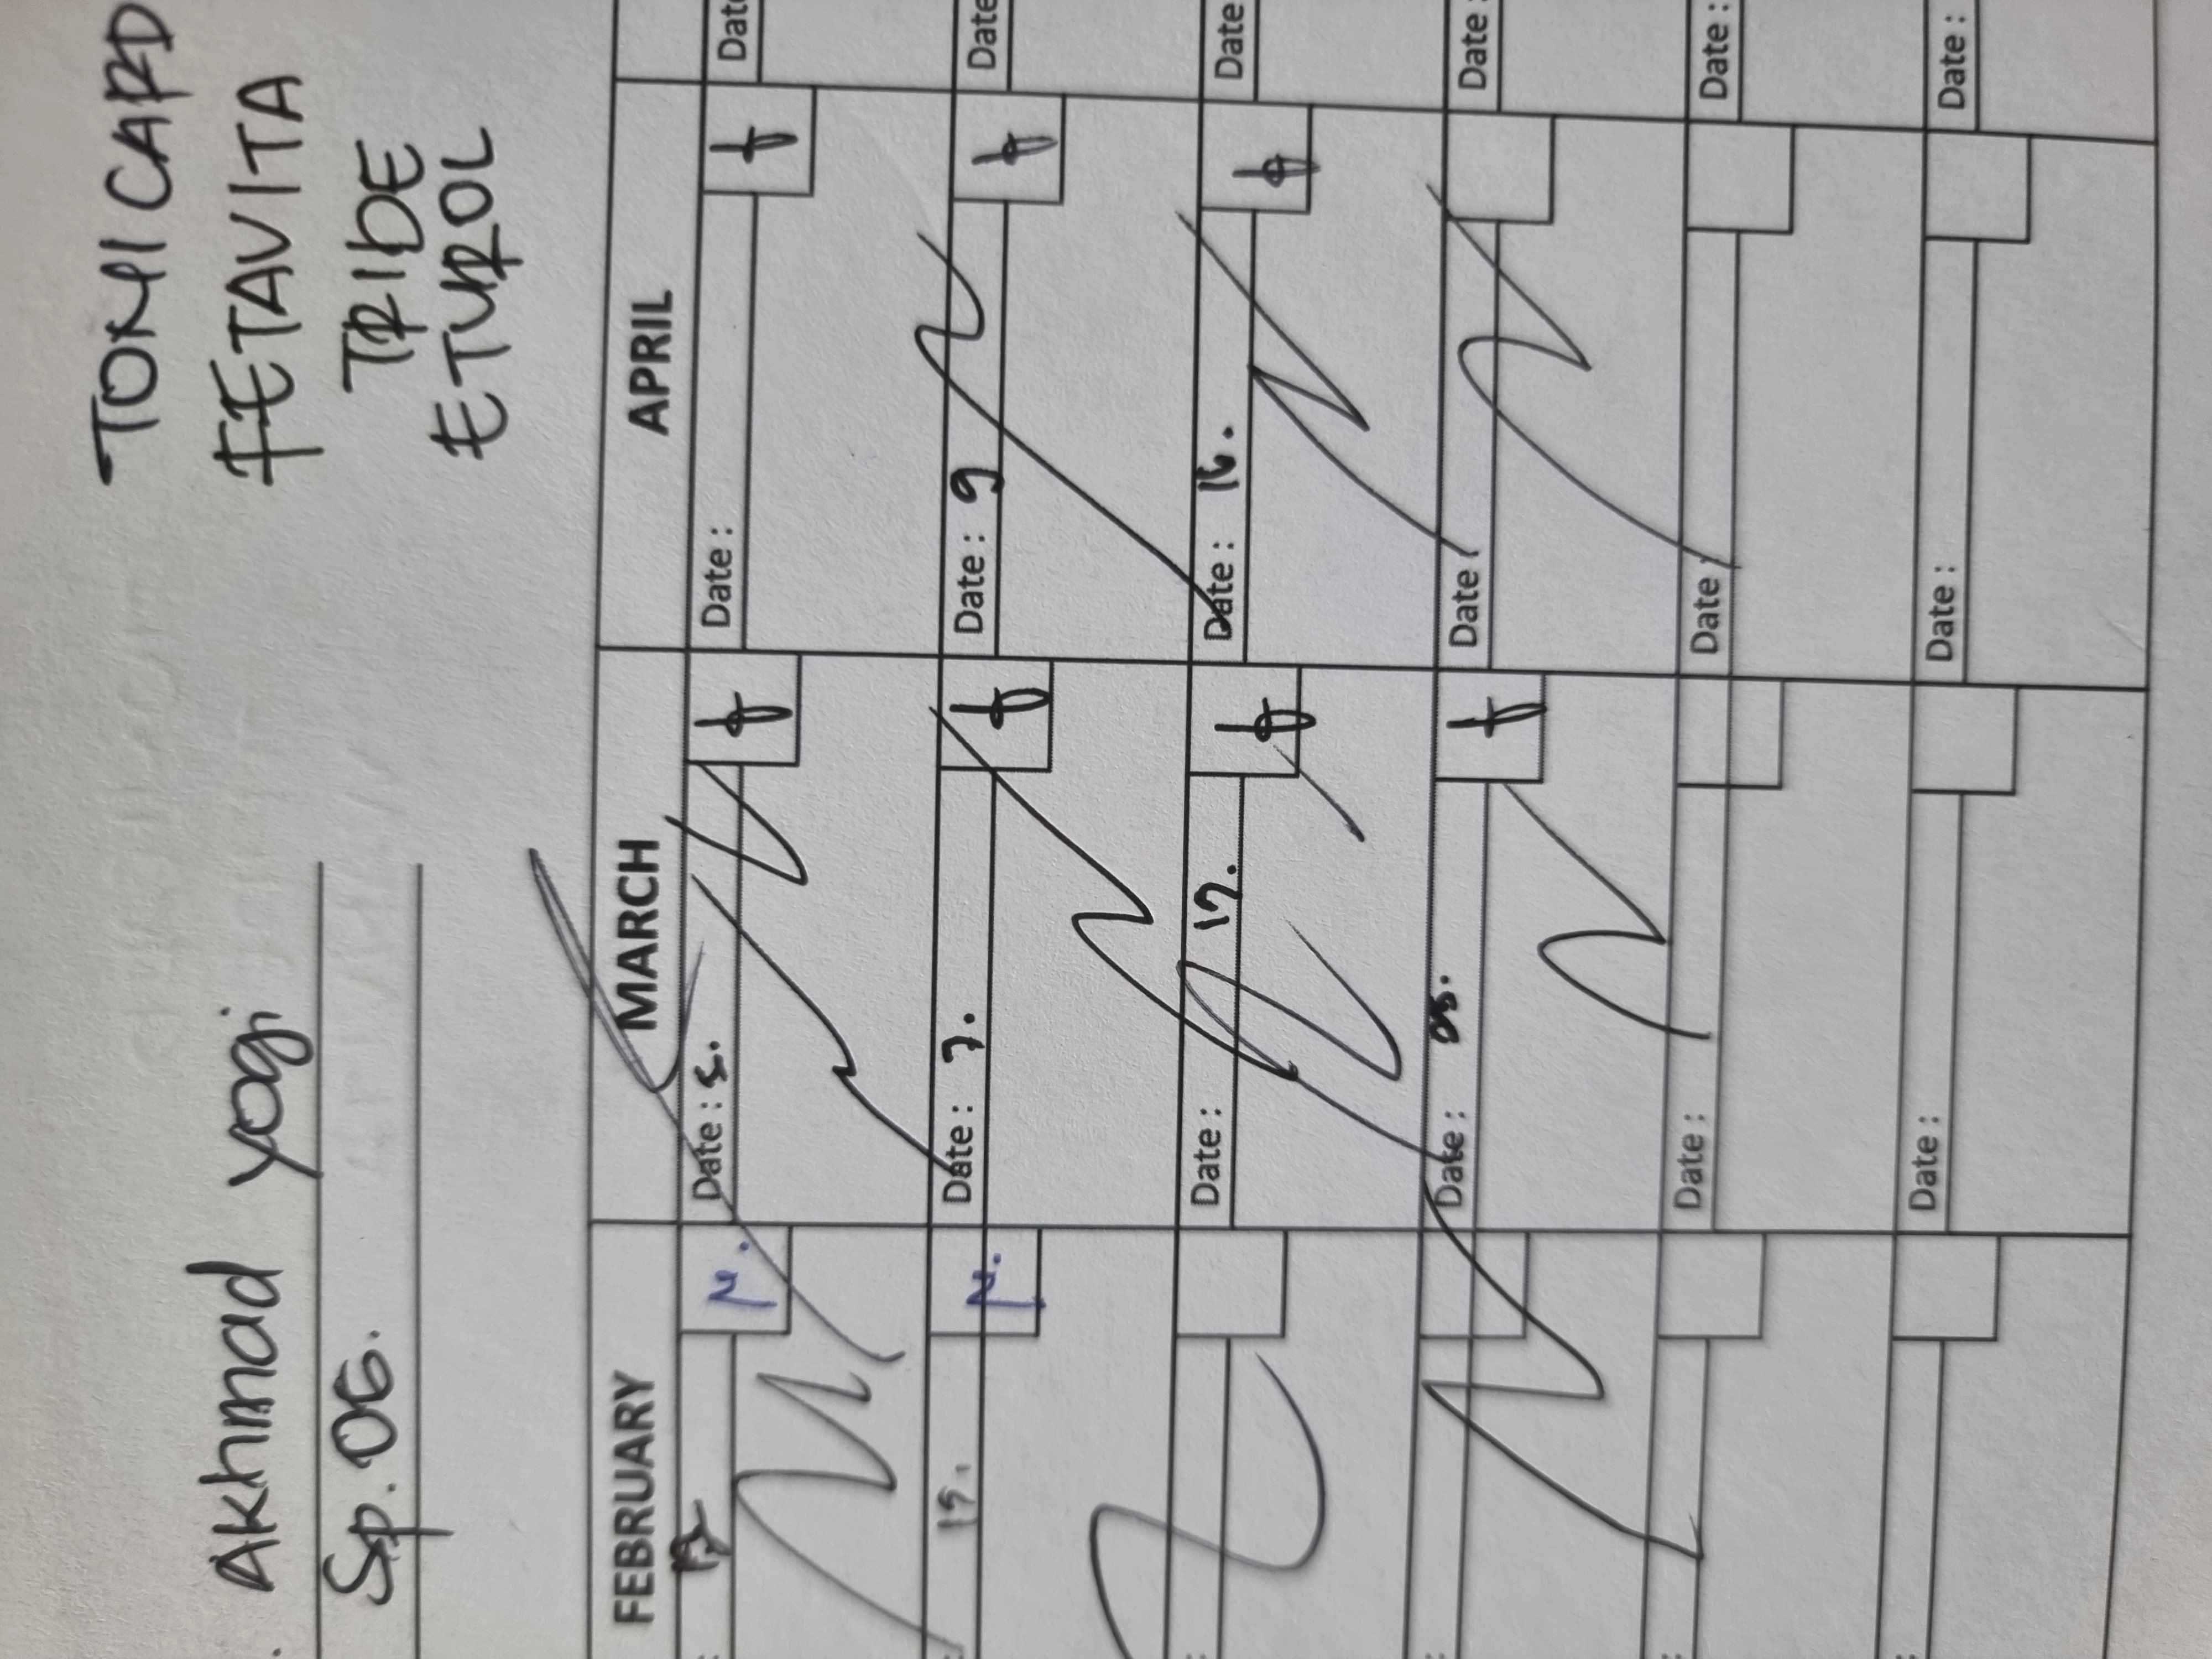 TOMICARD
Akhmad Yogi
FETAVITA
Sp.OG.
TRIDE
ETUROL
FEBRUARY MARCH APRIL
Date : 5. Date :
19. Date : 7. Date : 9 Date
Date : 17. Date : 16. Date
Date : Date : Date :
Date : Date : Date :
Date : Date : Date :